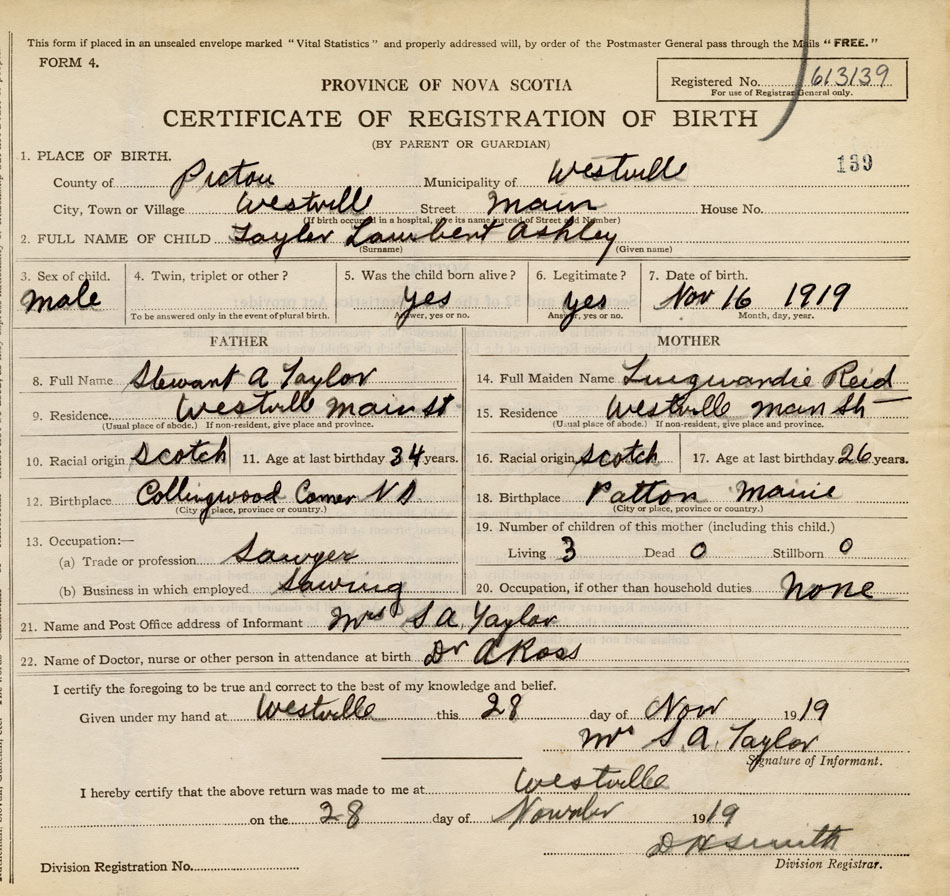 This form if placed in an unsealed envelope marked "Vital Statistics" and properly addressed will, by order of the Postmaster General pass through the Mails "FREE."
FORM 4.
Registered No. 613139
For use of Registrar General only.
PROVINCE OF NOVA SCOTIA
CERTIFICATE OF REGISTRATION OF BIRTH
(BY PARENT OR GUARDIAN)
139
1. PLACE OF BIRTH.
County of Pictou Municipality of Westville
City, Town or Village Westville Street Main House No.
(If birth occurred in a hospital, give its name instead of Street and Number)
2. FULL NAME OF CHILD Taylor Lambert Ashley
(Surname) (Given name)
3. Sex of child. 4. Twin, triplet or other? 5. Was the child born alive? 6. Legitimate? 7. Date of birth.
Male yes yes Nov 16 1919
To be answered only in the event of plural birth. Answer, yes or no. Answer, yes or no. Month, day, year.
FATHER MOTHER
8. Full Name Stewart A Taylor 14. Full Maiden Name Reid
9. Residence Westville Main St 15. Residence Westville Main St
(Usual place of abode.) If non-resident, give place and province. (Usual place of abode.) If non-resident, give place and province.
10. Racial origin Scotch 11. Age at last birthday 34 years. 16. Racial origin Scotch 17. Age at last birthday 26 years.
12. Birthplace Collingwood Corner NS 18. Birthplace Patton Maine
(City or place, province or country.) (City or place, province or country.)
13. Occupation:— 19. Number of children of this mother (including this child.)
(a) Trade or profession Sawyer Living 3 Dead 0 Stillborn 0
(b) Business in which employed Sawing 20. Occupation, if other than household duties None
21. Name and Post Office address of Informant Mrs S A Taylor
22. Name of Doctor, nurse or other person in attendance at birth Dr A Ross
I certify the foregoing to be true and correct to the best of my knowledge and belief.
Given under my hand at Westville this 28 day of Nov 1919
Mrs S. A. Taylor
Signature of Informant.
I hereby certify that the above return was made to me at Westville
on the 28 day of 1919
D H Smith
Division Registration No. Division Registrar.